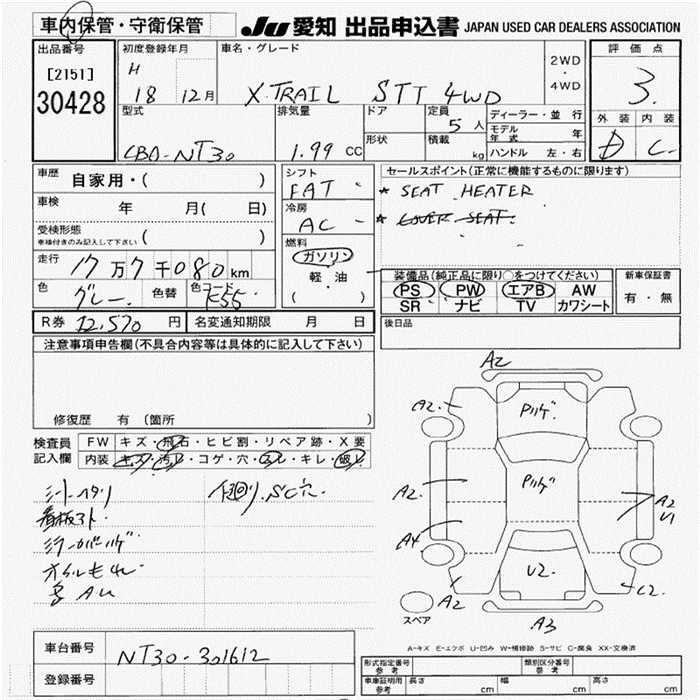 車内保管・守衛保管
JU 愛知 出品申込書 JAPAN USED CAR DEALERS ASSOCIATION
出品番号
[2151]
30428
初度登録年月
H
18 12月
車名・グレード
X.TRAIL STT 4WD
2WD
・
4WD
評価点
3.
外装 内装
D C
型式
CBA-NT30
排気量
1.99 CC
ドア
形状
定員
5人
積載 kg
ディーラー・並行
モデル年式 年
ハンドル 左・右
車歴 自家用・( )
車検 年 月( 日)
受検形態
車検付きのみ記入して下さい ( )
走行 17万7千080km
色 グレー 色替 色コード K55
シフト
FAT
冷房
AC
燃料
ガソリン
軽・油
( )
セールスポイント(正常に機能するものに限ります)
* SEAT HEATER
* COVER SEAT.
装備品(純正品に限り○をつけてください)
PS PW エアB AW
SR ナビ TV カワシート
新車保証書
有・無
R券 12,570 円 名変通知期限 月 日
後日品
注意事項申告欄(不具合内容等は具体的に記入して下さい)
修復歴 有 (箇所 )
検査員
記入欄
FW キズ・飛石・ヒビ割・リペア跡・X要
内装 キズ・汚レ・コゲ・穴・スレ・キレ・破レ
シートヘタリ
看板スト
下廻りSC穴.
オイルもれ
A2
A2
A2
A4
A2
A3
C2
A2
U1
U2.
スペア
A-キズ E-エクボ U-凹み W-補修跡 S-サビ C-腐食 XX-交換済
車台番号 NT30-301612
登録番号
形式指定番号
参考
類別区分番号
参考
車庫証明用
参考
長さ cm 幅 cm 高さ cm